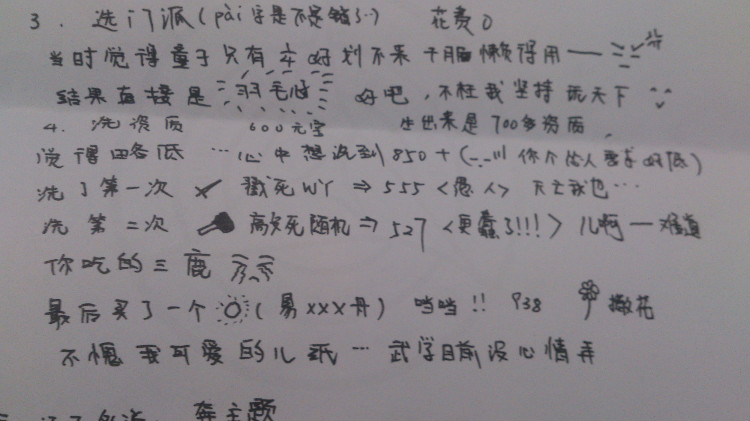 3. 选门派(pài字是不是错了··) 花费0
当时觉得童子只有 好划不来 干脆懒得用——
结果直接是 羽毛 好吧,不枉我坚持玩天下
4. 洗资质 600元宝 生出来是700多资质,
觉得略低 …心中想洗到850+(-_-||| 你个 人要求好低)
洗了第一次 戳死WY ⇒ 555<愚人> 天亡我也…
洗第二次 敲死随机 ⇒ 527<更蠢了!!!> 儿啊一难道
你吃的三鹿
最后买了一个 (易XXX丹) 当当!! 938 撒花
不愧我可爱的儿纸… 武学目前没心情弄
奔主题